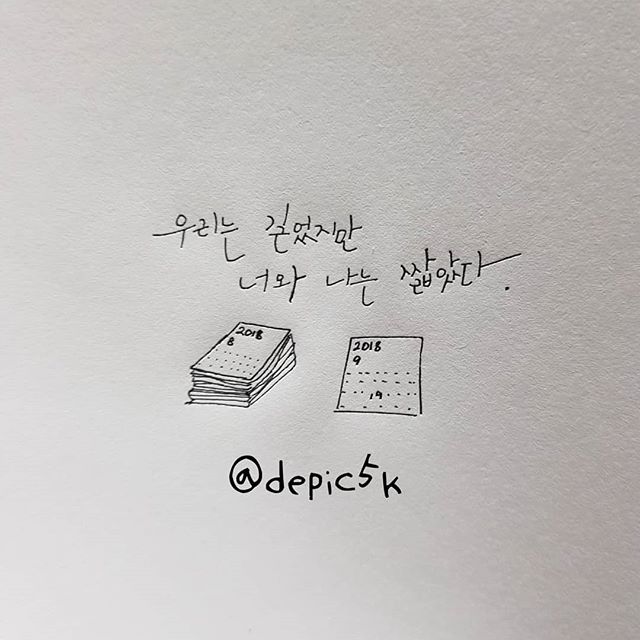 우리는 길었지만
너와 나는 짧았다.
2018
8
2018
9
19
@depic5k